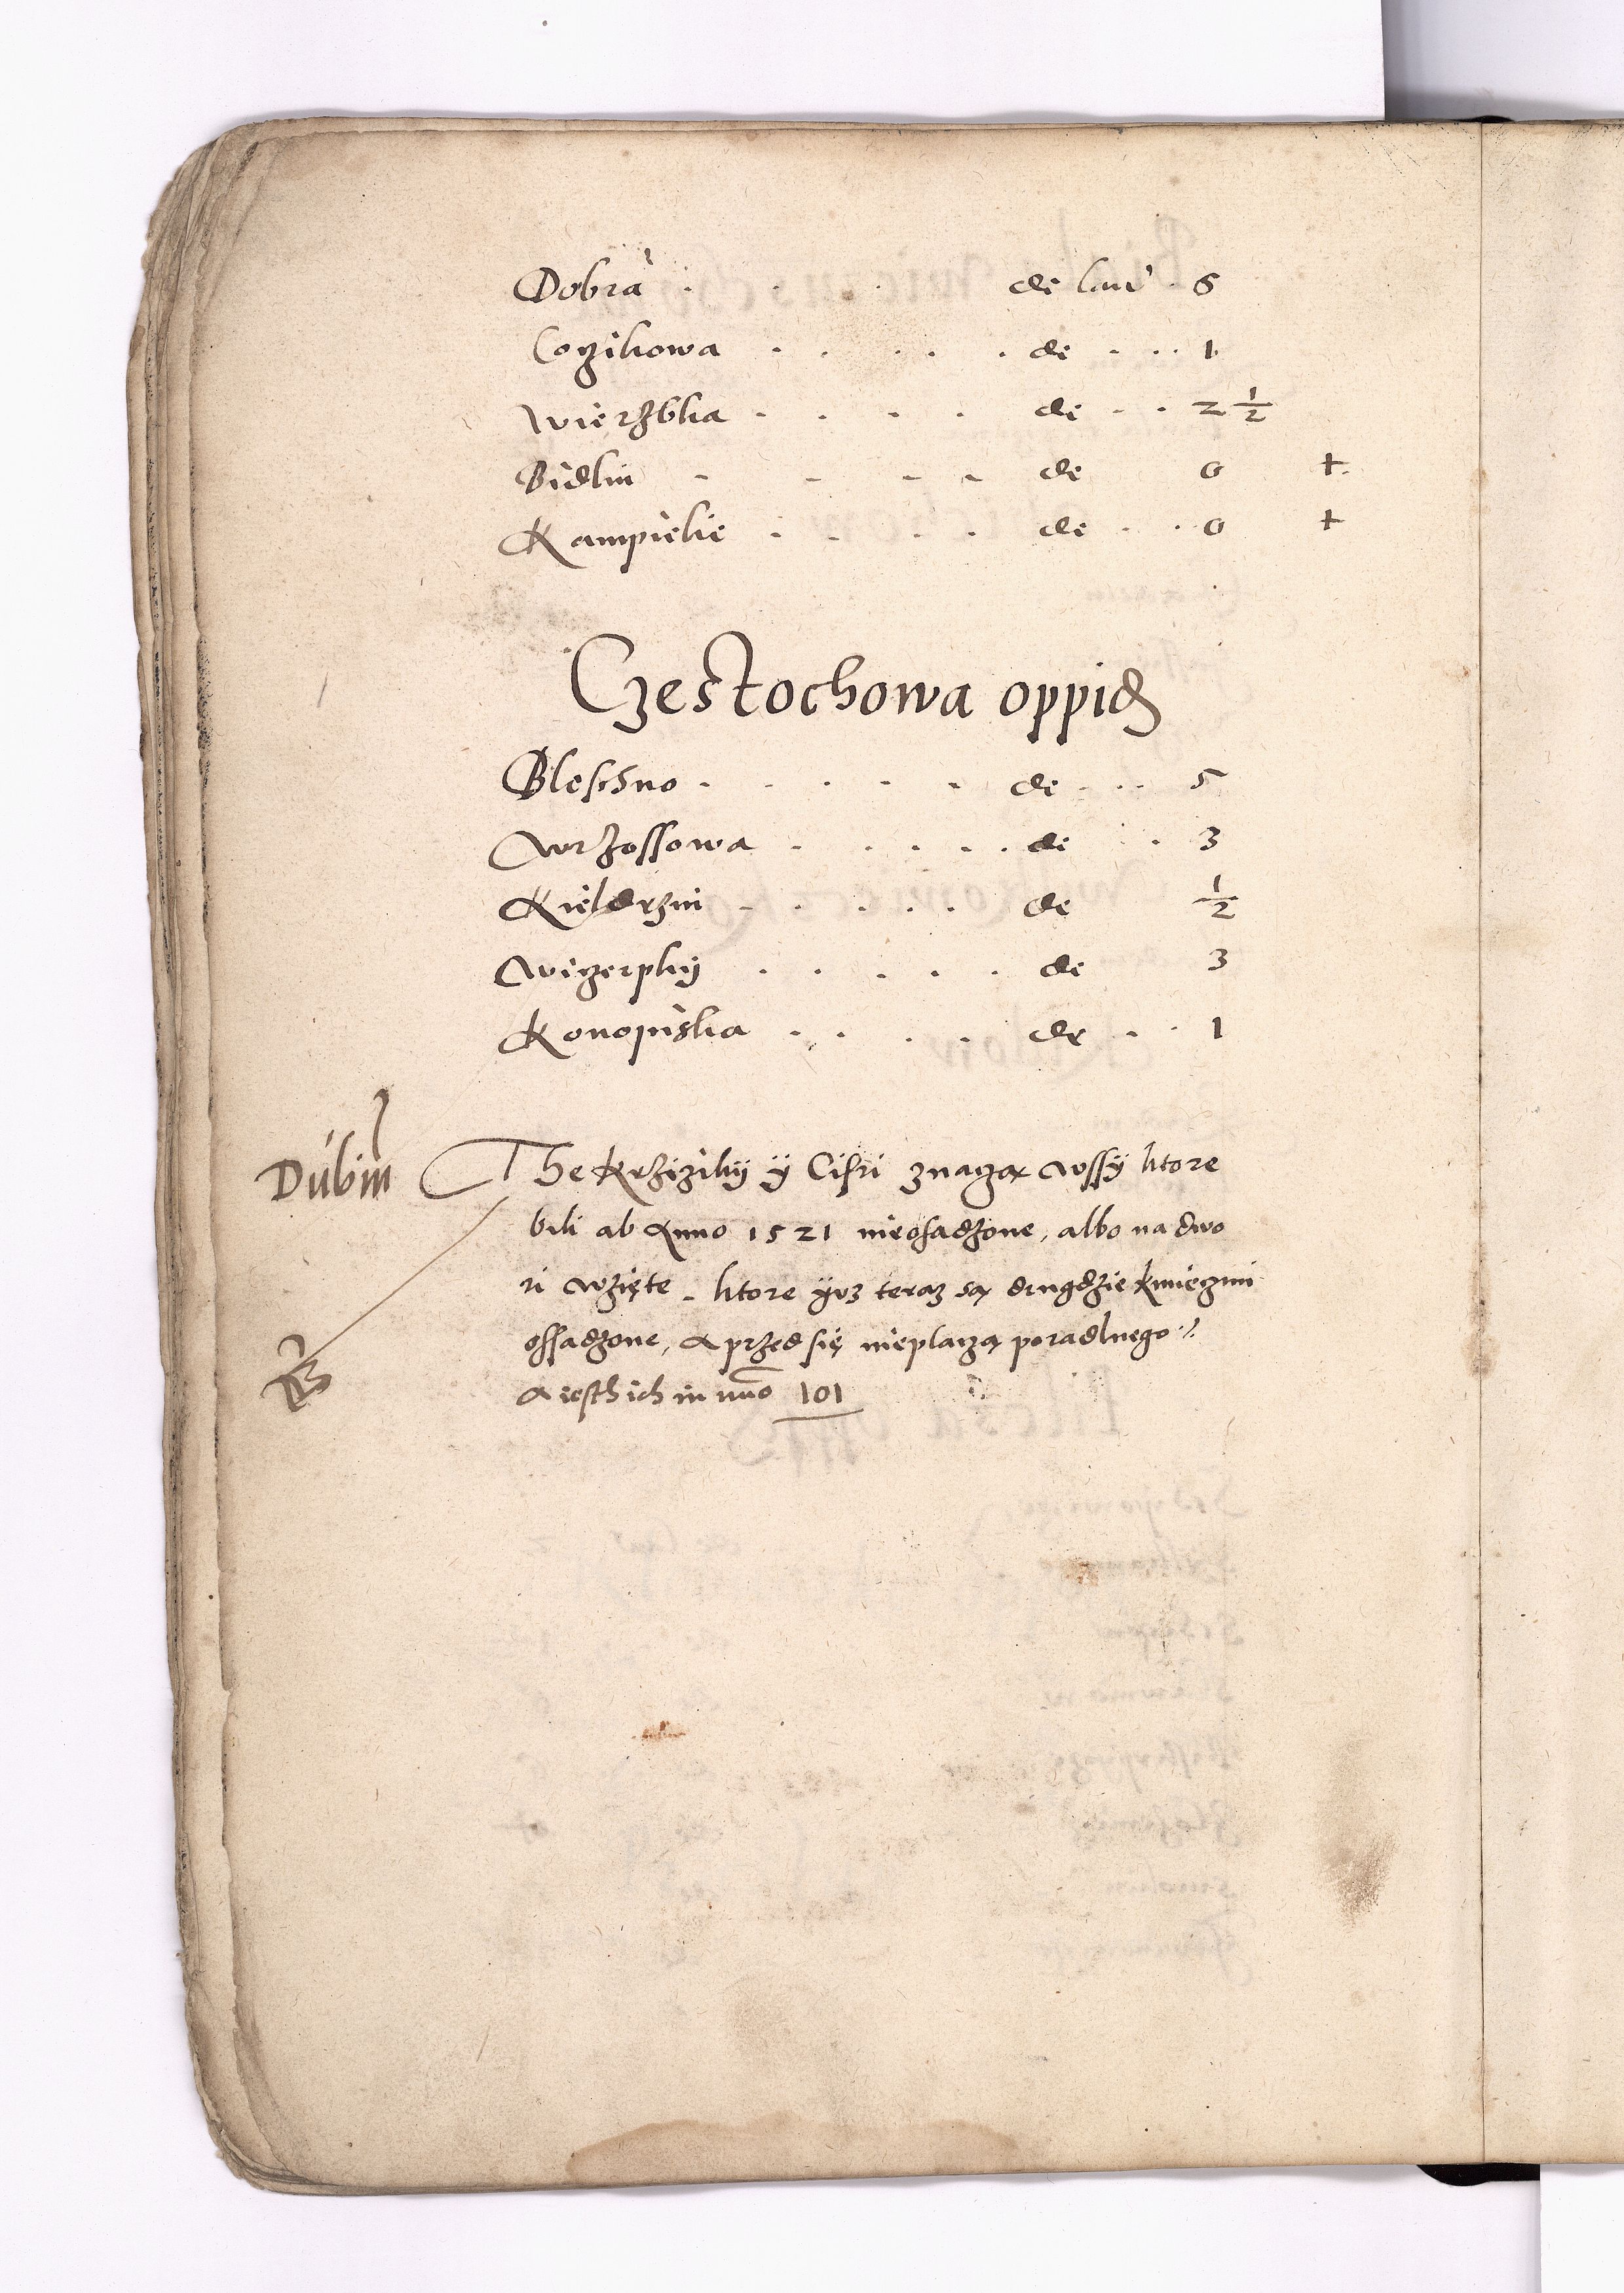 Dobra . . . de lan 6
Cozikowa . . . . . de . . . 1
Wierzbka . . . . de . . 2 1/2
Bidlin - - - - de 0 +
Kampielie . . . . de . . 0 +
Czestochowa oppid
Bleschno . . . . . de . . . 5
Wrzossowa . . . . . de . . 3
Kieldrzin . . . . . de 1/2
Wiczerpky . . . . . de 3
Konopiska . . . . de . . 1
Dubiu The Krziziky ÿ Cifri znacza wssÿ ktore
bili ab Anno 1521 nieosadzone, albo na dwo
ri wzięte - ktore ÿuz teraz są drugdzie kmieczmi
ossadzone, A przed się nieplaczą poradlnego
A iesth ich in nũo 101